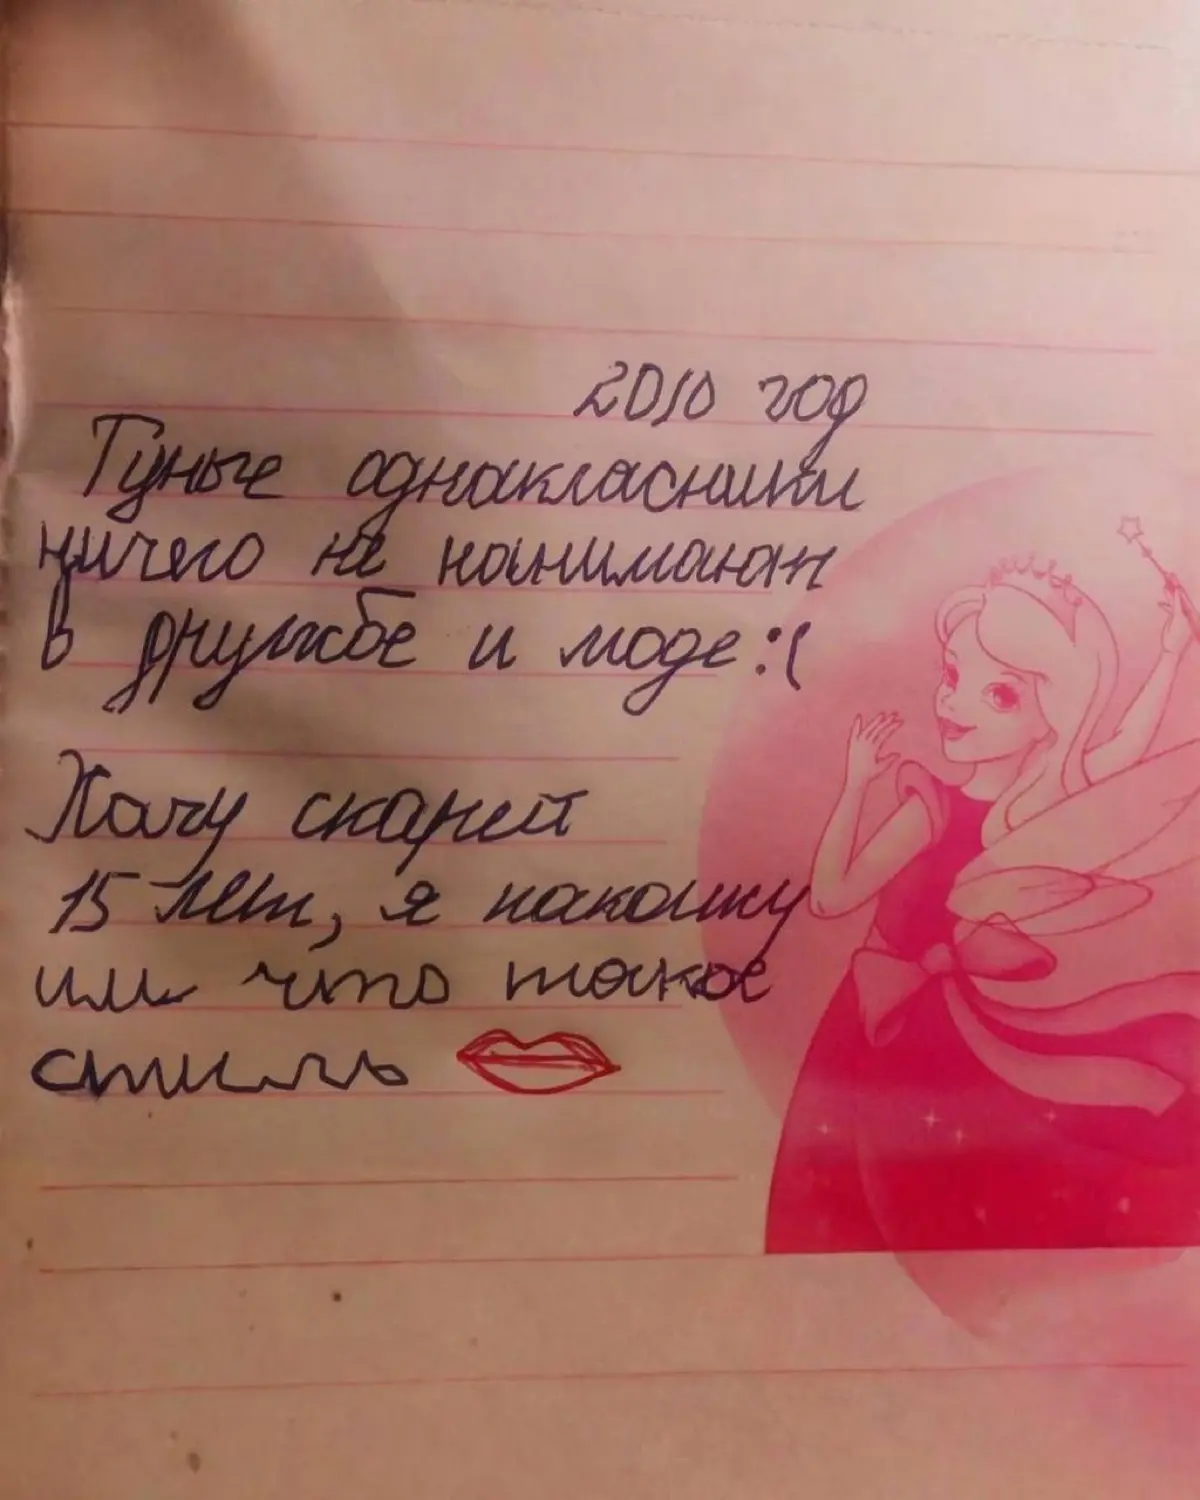 2010 год
Тупые однакласники
ничего не панимают
в дружбе и моде :(
Хачу скарей
15 лет, я пакажу
им что такое
стиль